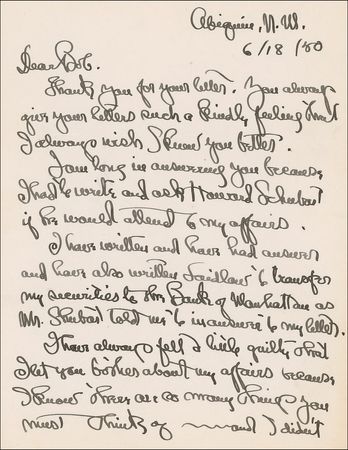 Abiquiu, N. M.
6/18/50
Dear Bob.
Thank you for your letter. You always
give your letters such a kindly feeling that
I always wish I knew you better.
I am long in answering you because
I had to write and ask Howard Schubart
if he would attend to my affairs.
I have written and have had answer
and have also written Laidlaw to transfer
my securities to the Bank of Manhattan as
Mr. Shubart told me to in answer to my letter.
I have always felt a little guilty that
I let you bother about my affairs because
I know there are so many things you
must think of — and I didn't